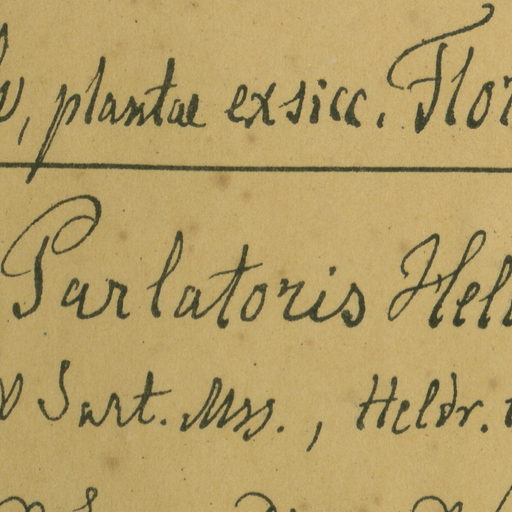 , plantae exsicc. Flor
Parlatoris Hel
Sart. Mss., Heldr.